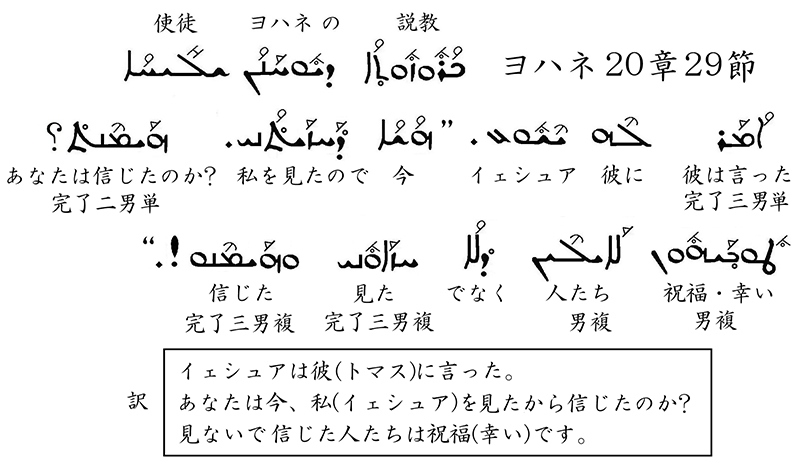 使徒 ヨハネ の 説教
ܟܪܘܙܘܬܐ ܕܝܘܚܢܢ ܫܠܝܚܐ ヨハネ 20章29節
ܐܡܪ ܠܗ ܝܫܘܥ. ” ܗܫܐ ܕܚܙܝܬܢܝ. ܗܝܡܢܬ؟
あなたは信じたのか? 私を見たので 今 イェシュア 彼に 彼は言った
完了二男単 完了三男単
ܛܘܒܝܗܘܢ ܠܐܝܠܝܢ ܕܠܐ ܚܙܐܘܢܝ ܘܗܝܡܢܘ!.“
信じた 見た でなく 人たち 祝福・幸い
完了三男複 完了三男複 男複 男複
訳
イェシュアは彼(トマス)に言った。
あなたは今、私(イェシュア)を見たから信じたのか?
見ないで信じた人たちは祝福(幸い)です。